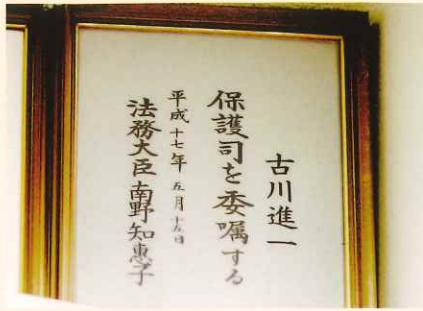 古川進一
保護司を委嘱する
平成十七年五月十五日
法務大臣南野知惠子